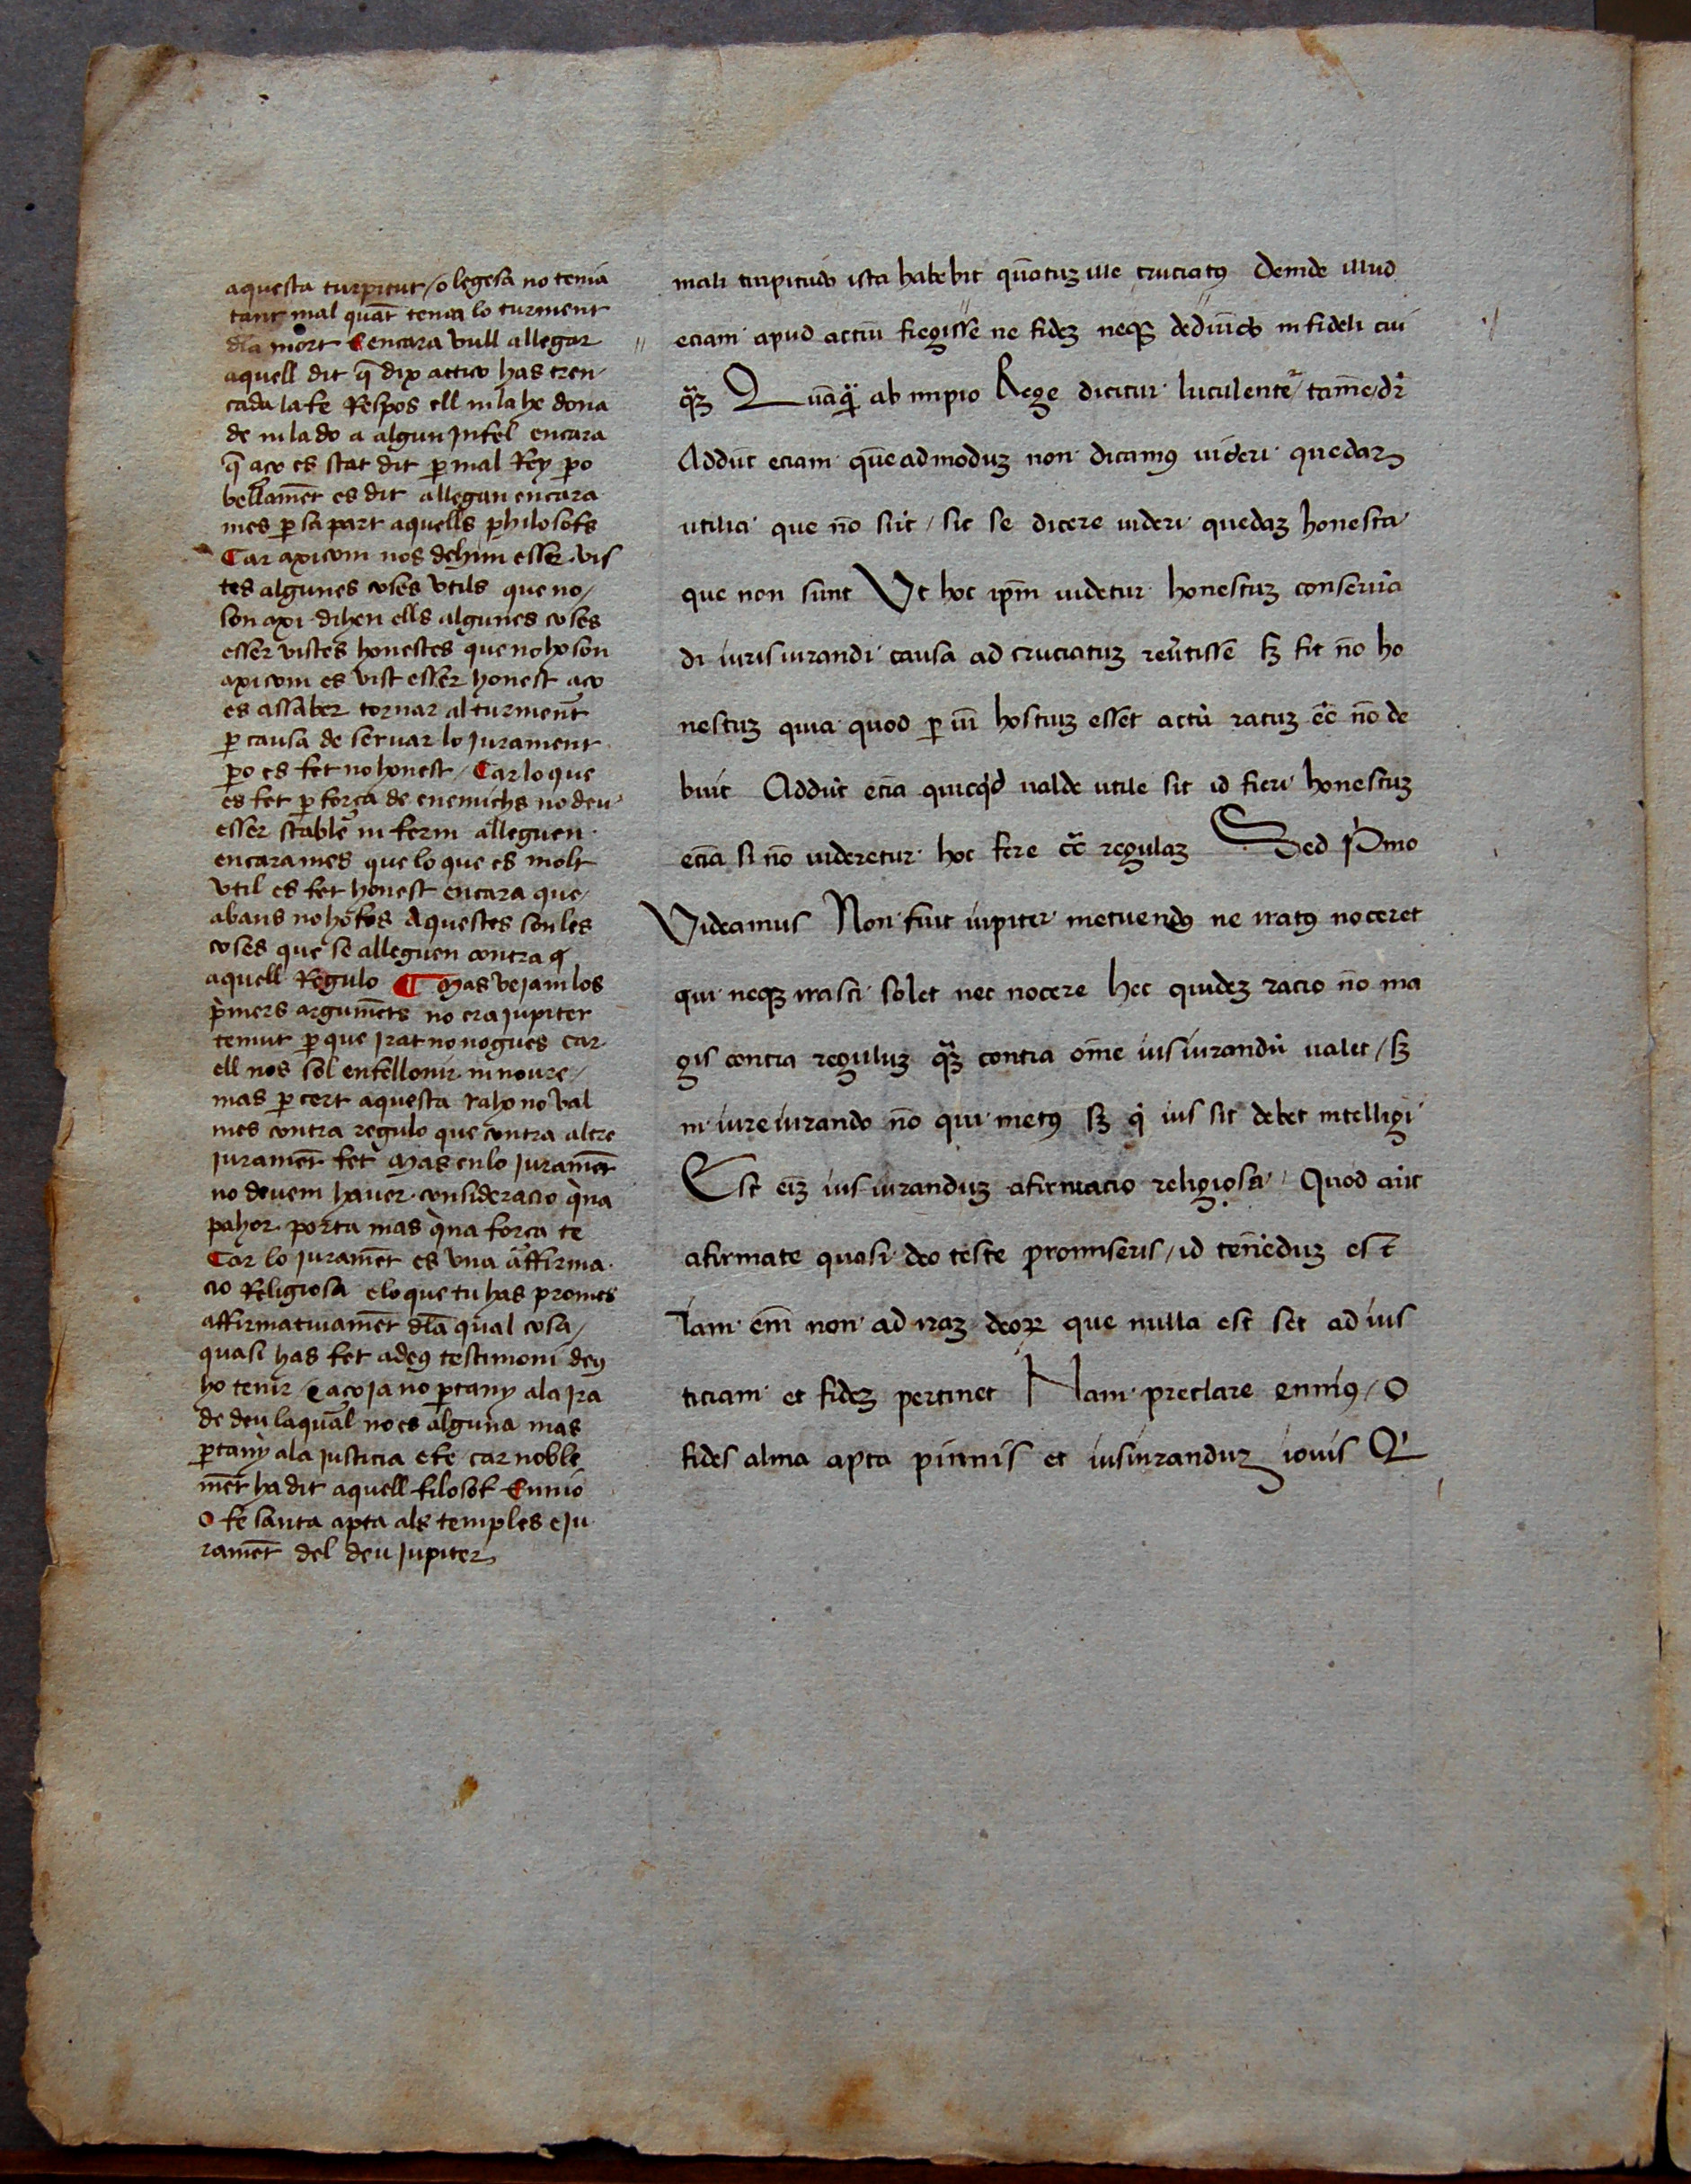 aquesta turpitut / o legesa no tenia
tant mal quāt tenia lo turment
dla mort E encara vull allegar
aquell dit q̄ dix attio has tren
cada la fe Respos ell ni la he dona
de ni la do a algun Infel encara
q̄ aço es stat dit ꝑ mal Rey ꝑo
bellamēt es dit allegan encara
mes ꝑ sa part aquells philosofs
Car axi com nos dehim esser vis
tes algunes coses vtils que no /
son axi dihen ells algunes coses
esser vistes honestes que no ho son
axi com es vist esser honest aço
es assaber tornar al turment
ꝑ causa de seruar lo Jurament
ꝑo es fet no honest / Car lo que
es fet ꝑ força de enemichs no deu
esser stable ni ferm alleguen
encara mes que lo que es molt
vtil es fet honest encara que /
abans no ho fos Aquestes son les
coses que se alleguen contra
aquell Regulo ¶ Mas vejam los
pͥmers argumēts no era Jupiter
temut ꝑ que Irat no nogues car
ell nos sol enfellonir ni noure /
mas ꝑ cert aquesta raho no val
mes contra regulo que contra altre
Juramēt fet Mas en lo Juramēt
no deuem hauer consideracio qͥna
pahor porta mas qͥna força te
Car lo Juramēt es vna affirma
cio Religiosa e lo que tu has promes
affirmatiuamēt dla qual cosa /
quasi has fet a deꝰ testimoni deus
ho tenir / E aço Ja no ꝑtany a la Ira
de deu la qual no es alguna mas
ꝑtany a la Justicia e fe car noble
mēt ha dit aquell filosof Ennio
O fe santa apta als temples e Ju
ramēt del deu Jupiter
mali turpitudo ista habebit quātuȝ ille cruciatꝰ Deinde illud
eciam apud actiū fregissē ne fideȝ neqȝ dedi nec do infideli cui
qȝ Quāqͣ ab impio Rege dicitur luculente tamē dr̄
Addūt eciam quēadmoduȝ non dicamꝰ uideri quedam
utilia que nō sūt / sic se dicere uideri quedaȝ honesta
que non sunt Vt hoc ip̄m uidetur honestuȝ conserua
di iurisiurandi causa ad cruciatuȝ reūtissē sȝ fit nō ho
nestuȝ quia quod ꝑ uī hostiuȝ esset actū ratuȝ eē nō de
buit Addūt eciā quicqͥd ualde utile sit id fieri honestuȝ
eciā si nō uideretur hoc fere cͣ regulaȝ Sed pͥmo
Videamus Non fuit iupiter metuendꝰ ne iratꝰ noceret
qui neqȝ irasci solet nec nocere hec quideȝ racio nō ma
gis contra reguluȝ qͣȝ contra om̄e iusiurandū ualet / sȝ
in iureiurando nō qui metꝰ sȝ qͥ ius sit debet intelligi
Est eīȝ iusiuranduȝ afirmacio religiosa / Quod aūt
afirmate quasi deo teste promiseris / id tenēduȝ est
Iam em̄ non ad iraȝ deoꝝ que nulla est set ad ius
ticiam et fideȝ pertinet Nam preclare enniꝰ / O
fides alma apta pinnis et iusiuranduȝ iouis Qͥ